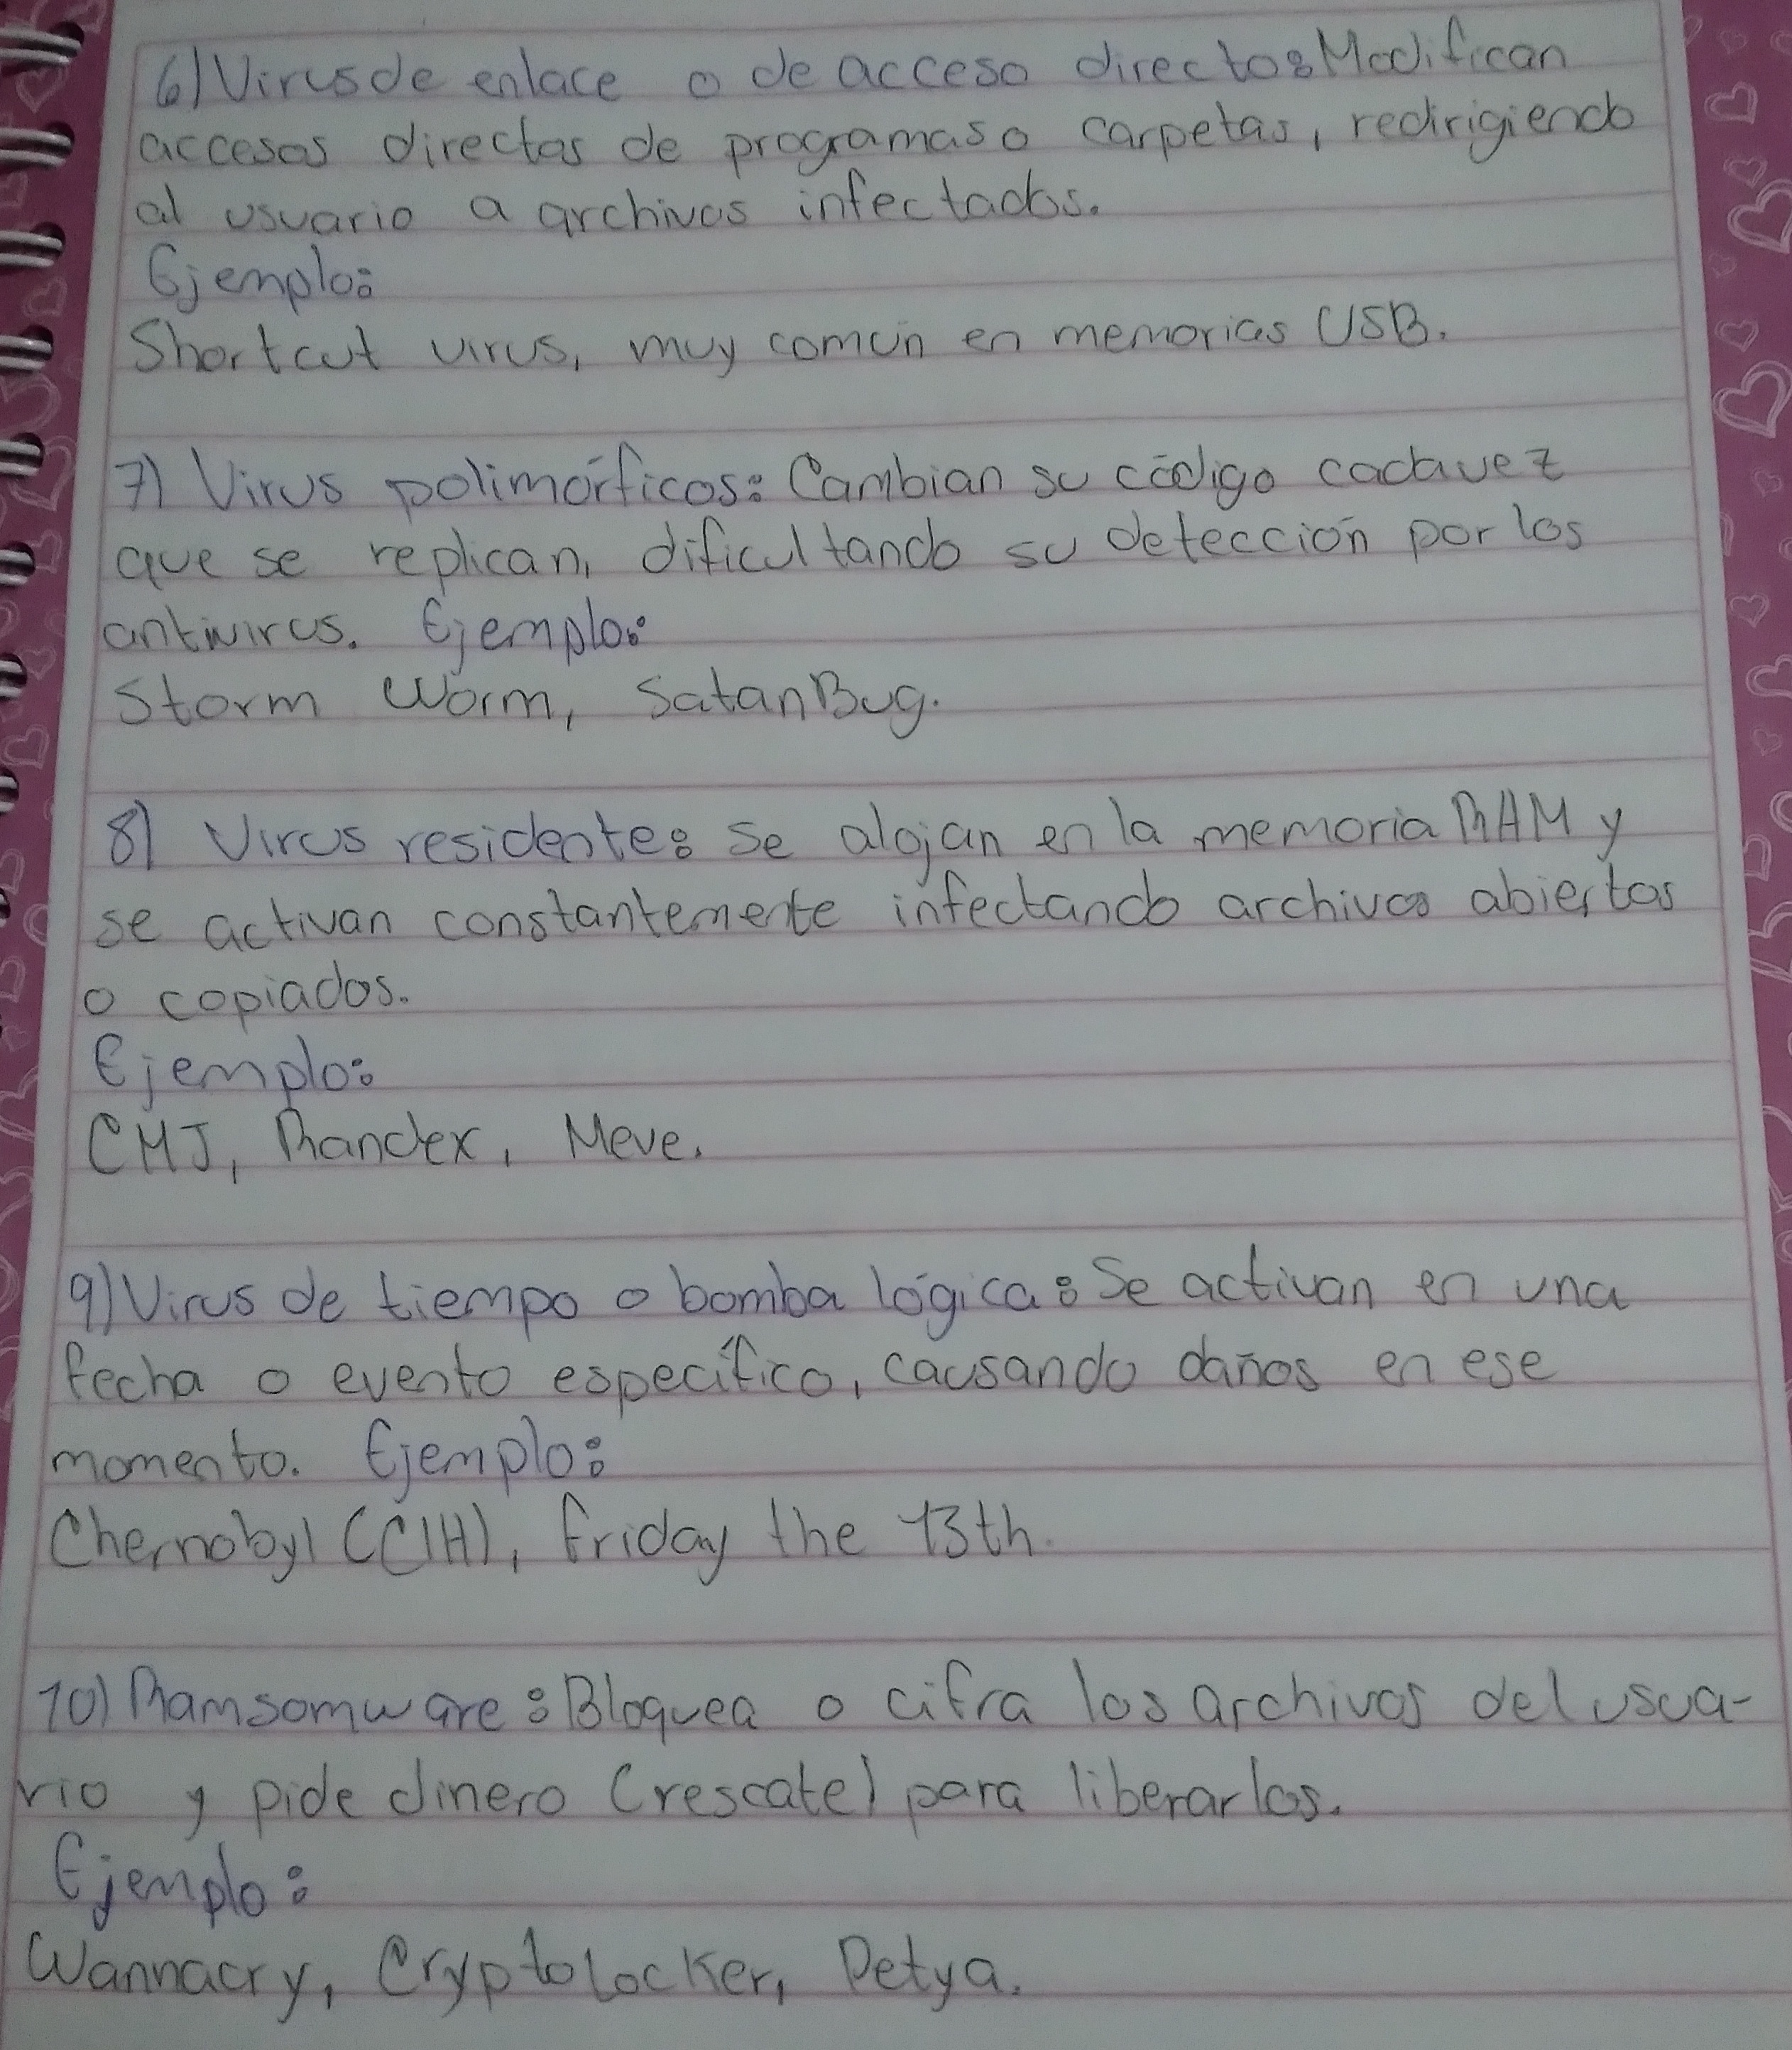 6) Virus de enlace o de acceso directo: Modifican
accesos directos de programas o carpetas, redirigiendo
al usuario a archivos infectados.
Ejemplo:
Shortcut virus, muy común en memorias USB.
7) Virus polimórficos: Cambian su código cada vez
que se replican, dificultando su detección por los
antivirus. Ejemplo:
Storm Worm, SatanBug.
8) Virus residente: Se alojan en la memoria RAM y
se activan constantemente infectando archivos abiertos
o copiados.
Ejemplo:
CMJ, Randex, Meve.
9) Virus de tiempo o bomba lógica: Se activan en una
fecha o evento específico, causando daños en ese
momento. Ejemplo:
Chernobyl (CIH), Friday the 13th.
10) Ramsomware: Bloquea o cifra los archivos del usua-
rio y pide dinero (rescate) para liberarlos.
Ejemplo:
Wannacry, Cryptolocker, Petya.